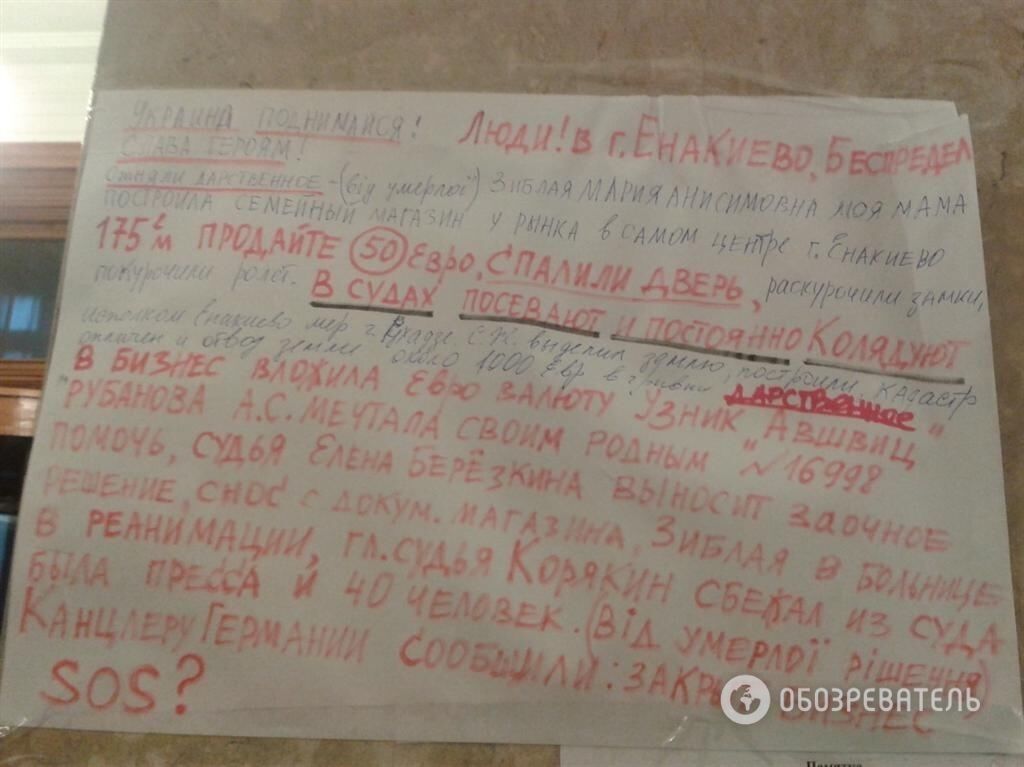 УКРАИНА ПОДНИМАЙСЯ!
СЛАВА ГЕРОЯМ!
ЛЮДИ! В г. ЕНАКИЕВО, БЕСПРЕДЕЛ
ОТНЯЛИ ДАРСТВЕННОЕ - (від умерлої) ЗИБЛАЯ МАРИЯ АНИСИМОВНА МОЯ МАМА
ПОСТРОИЛА СЕМЕЙНЫЙ МАГАЗИН У РЫНКА В САМОМ ЦЕНТРЕ г. ЕНАКИЕВО
175 м² ПРОДАЙТЕ 50 ЕВРО, СПАЛИЛИ ДВЕРЬ, РАСКУРОЧИЛИ ЗАМКИ,
ПОКУРОЧИЛИ РОЛЕТ. В СУДАХ ПОСЕВАЮТ И ПОСТОЯННО КОЛЯДУЮТ
исполком Енакиево мер г. С.Ж. выделил землю, построили, кадастр
оплачен и отвод земли около 1000 Евр в гривны ДАРСТВЕННОЕ
В БИЗНЕС ВЛОЖИЛА ЕВРО ВАЛЮТУ УЗНИК "АВШВИЦ"
РУБАНОВА А.С. МЕЧТАЛА СВОИМ РОДНЫМ "№16998
ПОМОЧЬ, СУДЬЯ ЕЛЕНА БЕРЁЗКИНА ВЫНОСИТ ЗАОЧНОЕ
РЕШЕНИЕ, СНОС С ДОКУМ. МАГАЗИНА, ЗИБЛАЯ В БОЛЬНИЦЕ
В РЕАНИМАЦИИ, ГЛ. СУДЬЯ КОРЯКИН СБЕЖАЛ ИЗ СУДА
БЫЛА ПРЕССА И 40 ЧЕЛОВЕК. (ВІД УМЕРЛОЇ РІШЕННЯ)
КАНЦЛЕРУ ГЕРМАНИИ СООБЩИЛИ: БИЗНЕС
SOS?
ОБОЗРЕВАТЕЛЬ
Памятка